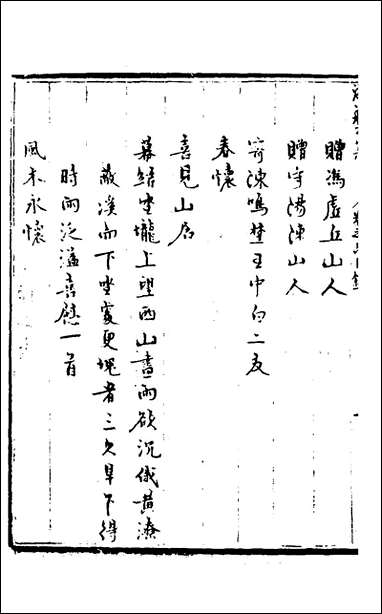 贈馮虛丘山人
贈宇陽陳山人
寄陳鳴埜王中白二友
春懷
喜見山居
暮結坐壠上望西山晝雨欲沉俄黃潦
蔽溪而下坐叟更塊者三久旱下得
時雨泛溢喜慰一首
風木永懷